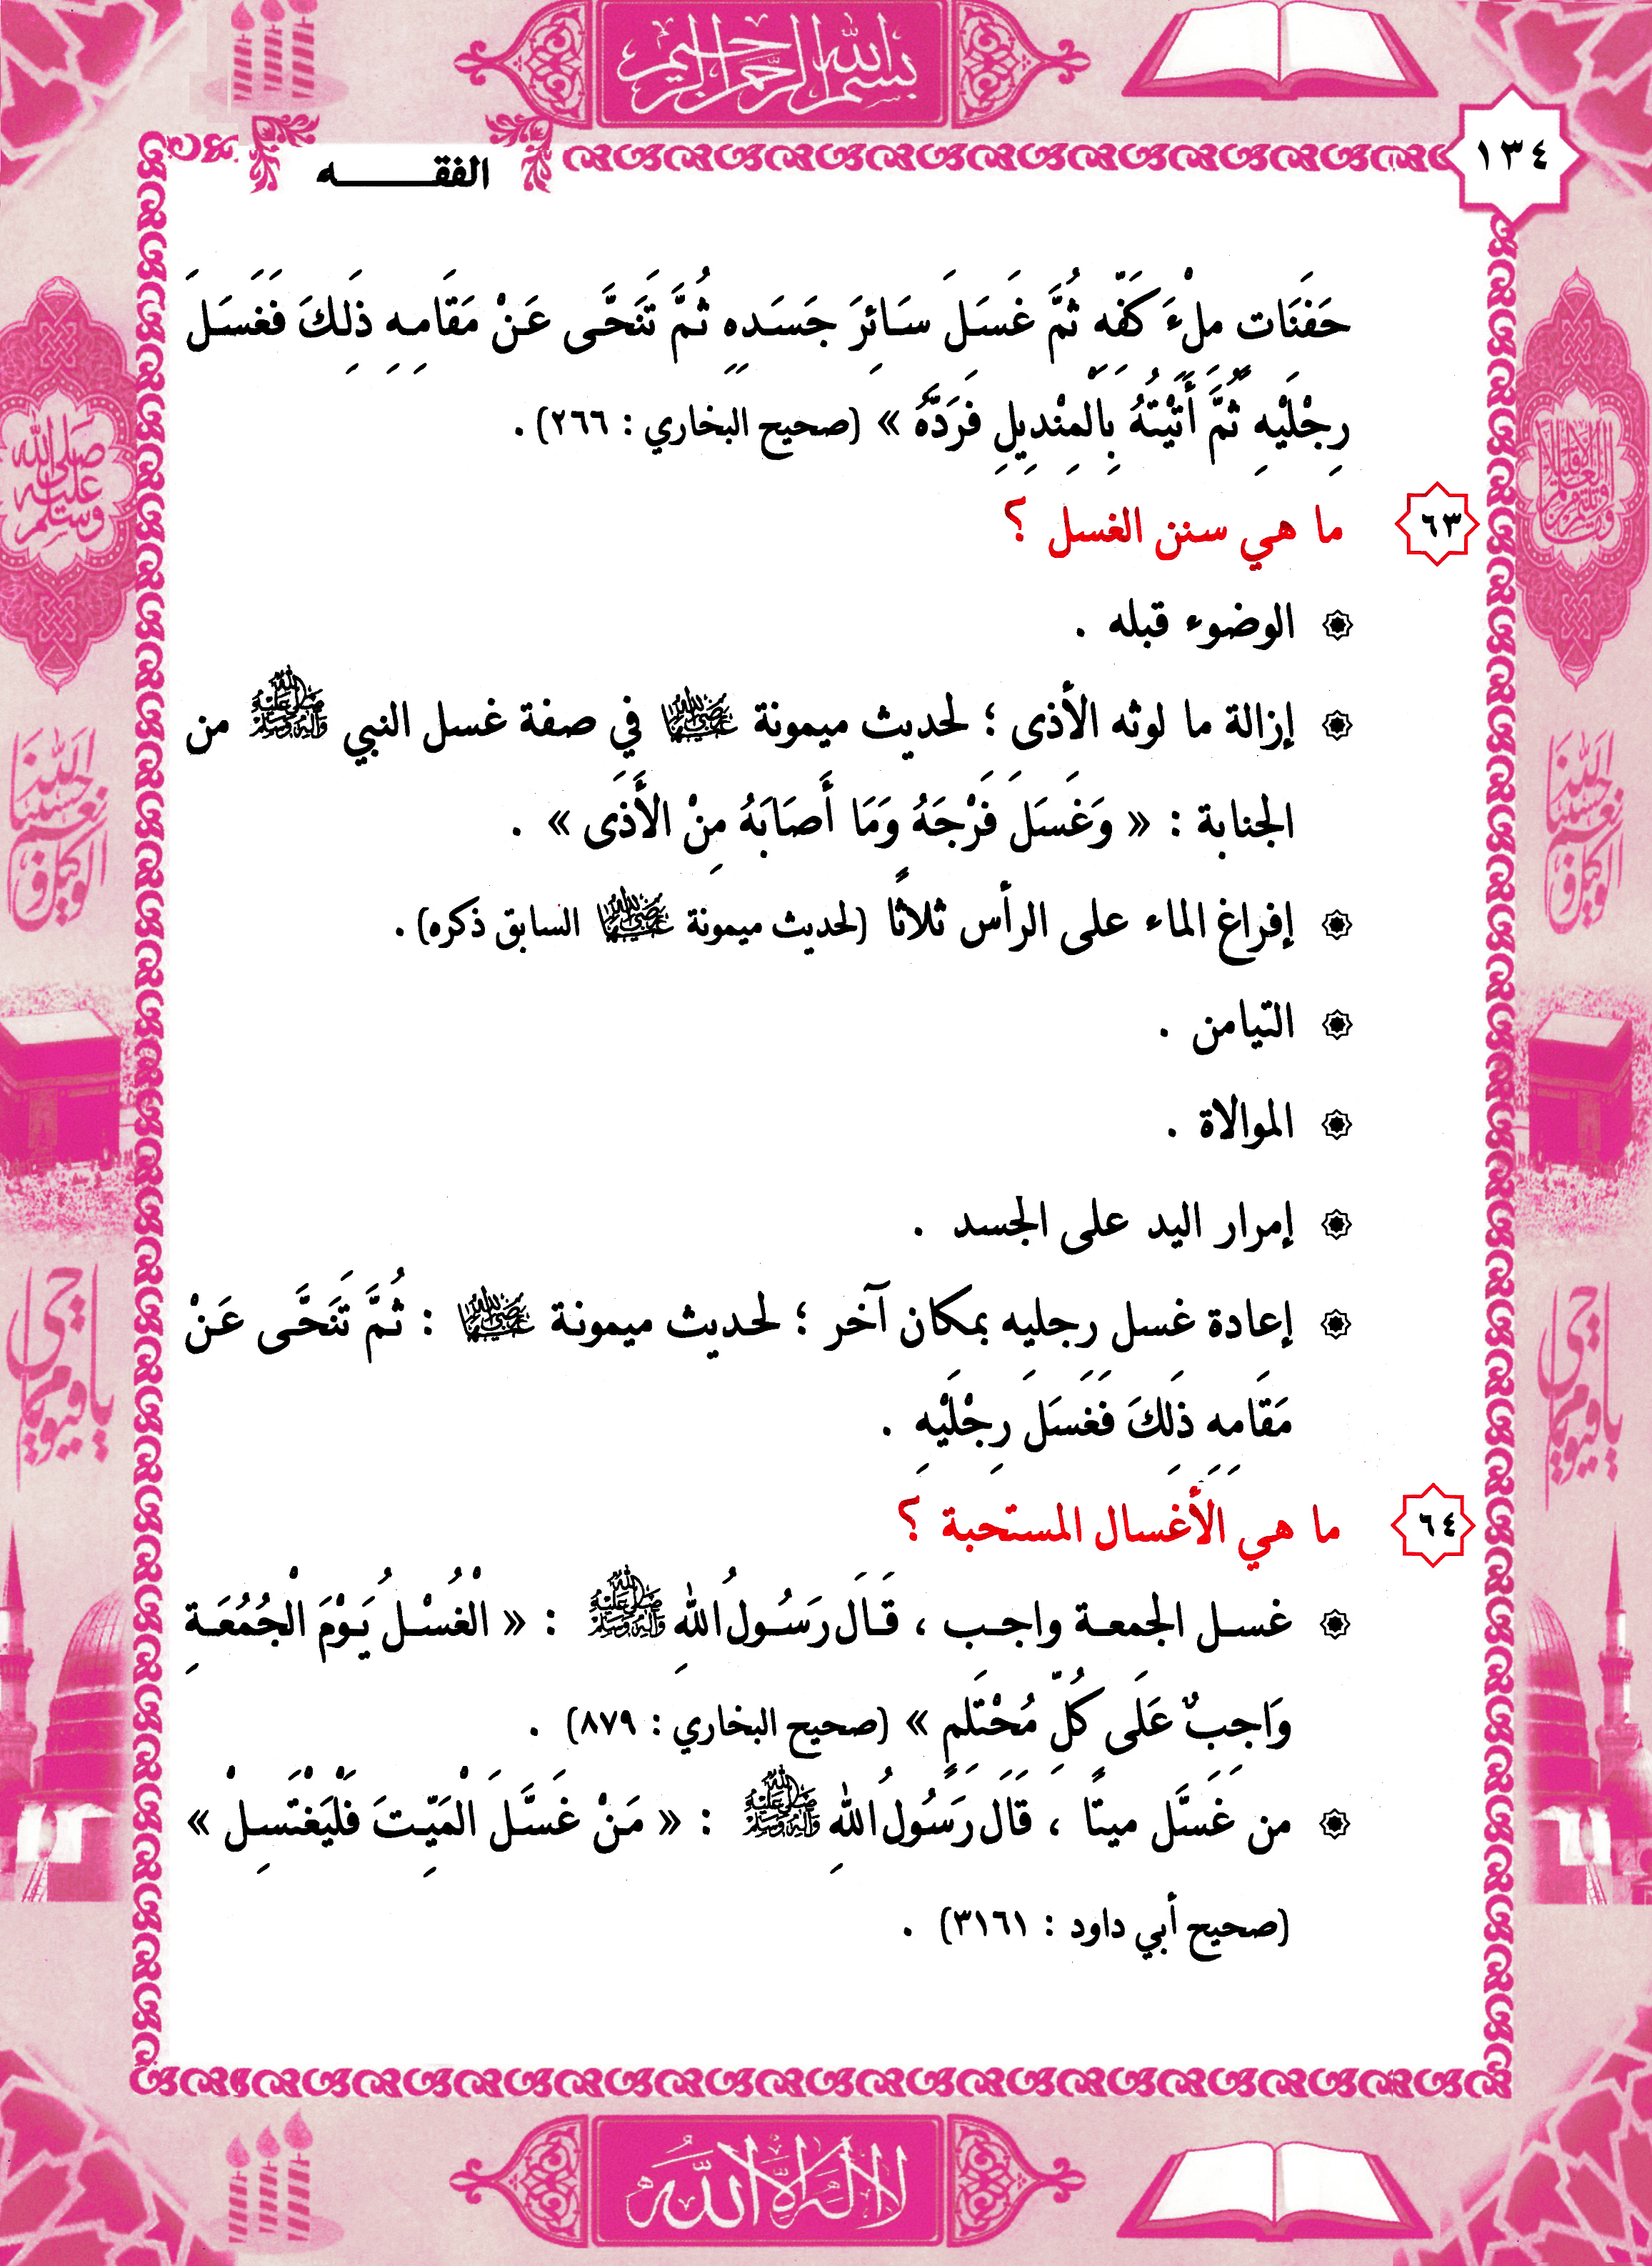 بسم الله الرحمن الرحيم
١٣٤
الفقـــــــه
حَفَنَاتٍ مِلْءَ كَفِّهِ ثُمَّ غَسَلَ سَائِرَ جَسَدِهِ ثُمَّ تَنَحَّى عَنْ مَقَامِهِ ذَلِكَ فَغَسَلَ
رِجْلَيْهِ ثُمَّ أَتَيْتُهُ بِالْمِنْدِيلِ فَرَدَّهُ » (صحيح البخاري : ٢٦٦) .
٦٣ ما هي سنن الغسل ؟
الوضوء قبله .
إزالة ما لوثه الأذى ؛ لحديث ميمونة رضي الله عنها في صفة غسل النبي صلى الله عليه وآله وسلم من
الجنابة : « وَغَسَلَ فَرْجَهُ وَمَا أَصَابَهُ مِنْ الأَذَى » .
إفراغ الماء على الرأس ثلاثًا (لحديث ميمونة رضي الله عنها السابق ذكره) .
التيامن .
الموالاة .
إمرار اليد على الجسد .
إعادة غسل رجليه بمكان آخر ؛ لحديث ميمونة رضي الله عنها : ثُمَّ تَنَحَّى عَنْ
مَقَامِهِ ذَلِكَ فَغَسَلَ رِجْلَيْهِ .
٦٤ ما هي الأغسال المستحبة ؟
غسل الجمعة واجب ، قَالَ رَسُولُ اللهِ صلى الله عليه وآله وسلم : « الْغُسْلُ يَوْمَ الْجُمُعَةِ
وَاجِبٌ عَلَى كُلِّ مُحْتَلِمٍ » (صحيح البخاري : ٨٧٩) .
من غَسَّل ميتًا ، قَالَ رَسُولُ اللهِ صلى الله عليه وآله وسلم : « مَنْ غَسَّلَ الْمَيِّتَ فَلْيَغْتَسِلْ »
(صحيح أبي داود : ٣١٦١) .
لا إله إلا الله
صلى الله عليه وسلم
حسبنا الله ونعم الوكيل
يا حي يا قيوم
حسبنا الله ونعم الوكيل
يا حي يا قيوم